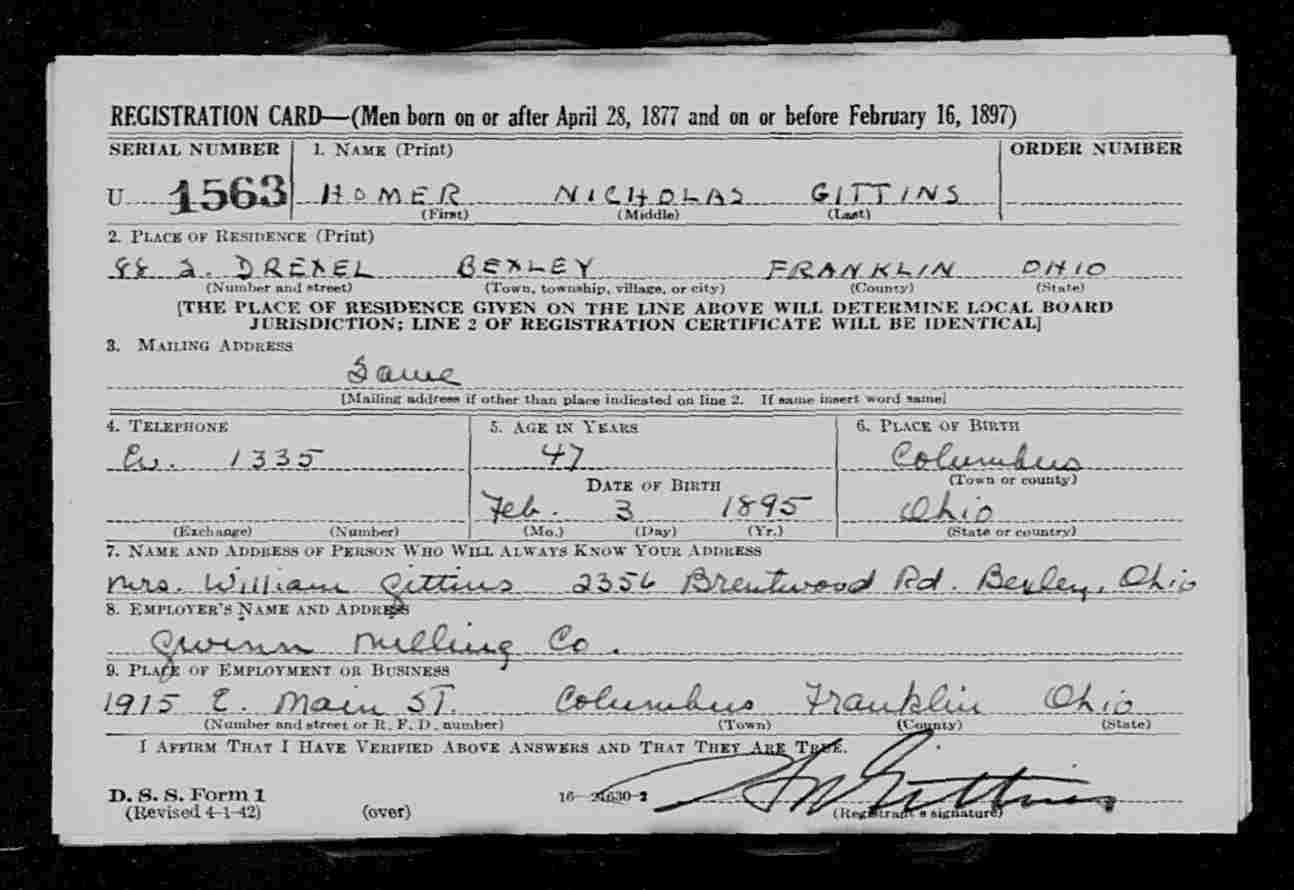 REGISTRATION CARD—(Men born on or after April 28, 1877 and on or before February 16, 1897)
SERIAL NUMBER 1. NAME (Print) ORDER NUMBER
U 1563 HOMER NICHOLAS GITTINS
(First) (Middle) (Last)
2. PLACE OF RESIDENCE (Print)
88 S. DREXEL BEXLEY FRANKLIN OHIO
(Number and street) (Town, township, village, or city) (County) (State)
[THE PLACE OF RESIDENCE GIVEN ON THE LINE ABOVE WILL DETERMINE LOCAL BOARD
JURISDICTION; LINE 2 OF REGISTRATION CERTIFICATE WILL BE IDENTICAL]
3. MAILING ADDRESS
Same
[Mailing address if other than place indicated on line 2. If same insert word same]
4. TELEPHONE 5. AGE IN YEARS 6. PLACE OF BIRTH
Ev. 1335 47 Columbus
DATE OF BIRTH (Town or county)
Feb. 3 1895 Ohio
(Exchange) (Number) (Mo.) (Day) (Yr.) (State or country)
7. NAME AND ADDRESS OF PERSON WHO WILL ALWAYS KNOW YOUR ADDRESS
Mrs. William Gittins 2356 Brentwood Rd. Bexley, Ohio
8. EMPLOYER'S NAME AND ADDRESS
Gwinn Milling Co.
9. PLACE OF EMPLOYMENT OR BUSINESS
1915 E. Main ST. Columbus Franklin Ohio
(Number and street or R. F. D. number) (Town) (County) (State)
I AFFIRM THAT I HAVE VERIFIED ABOVE ANSWERS AND THAT THEY ARE TRUE.
H N Gittins
D. S. S. Form 1 16—21630-2
(Revised 4-1-42) (over) (Registrant's signature)